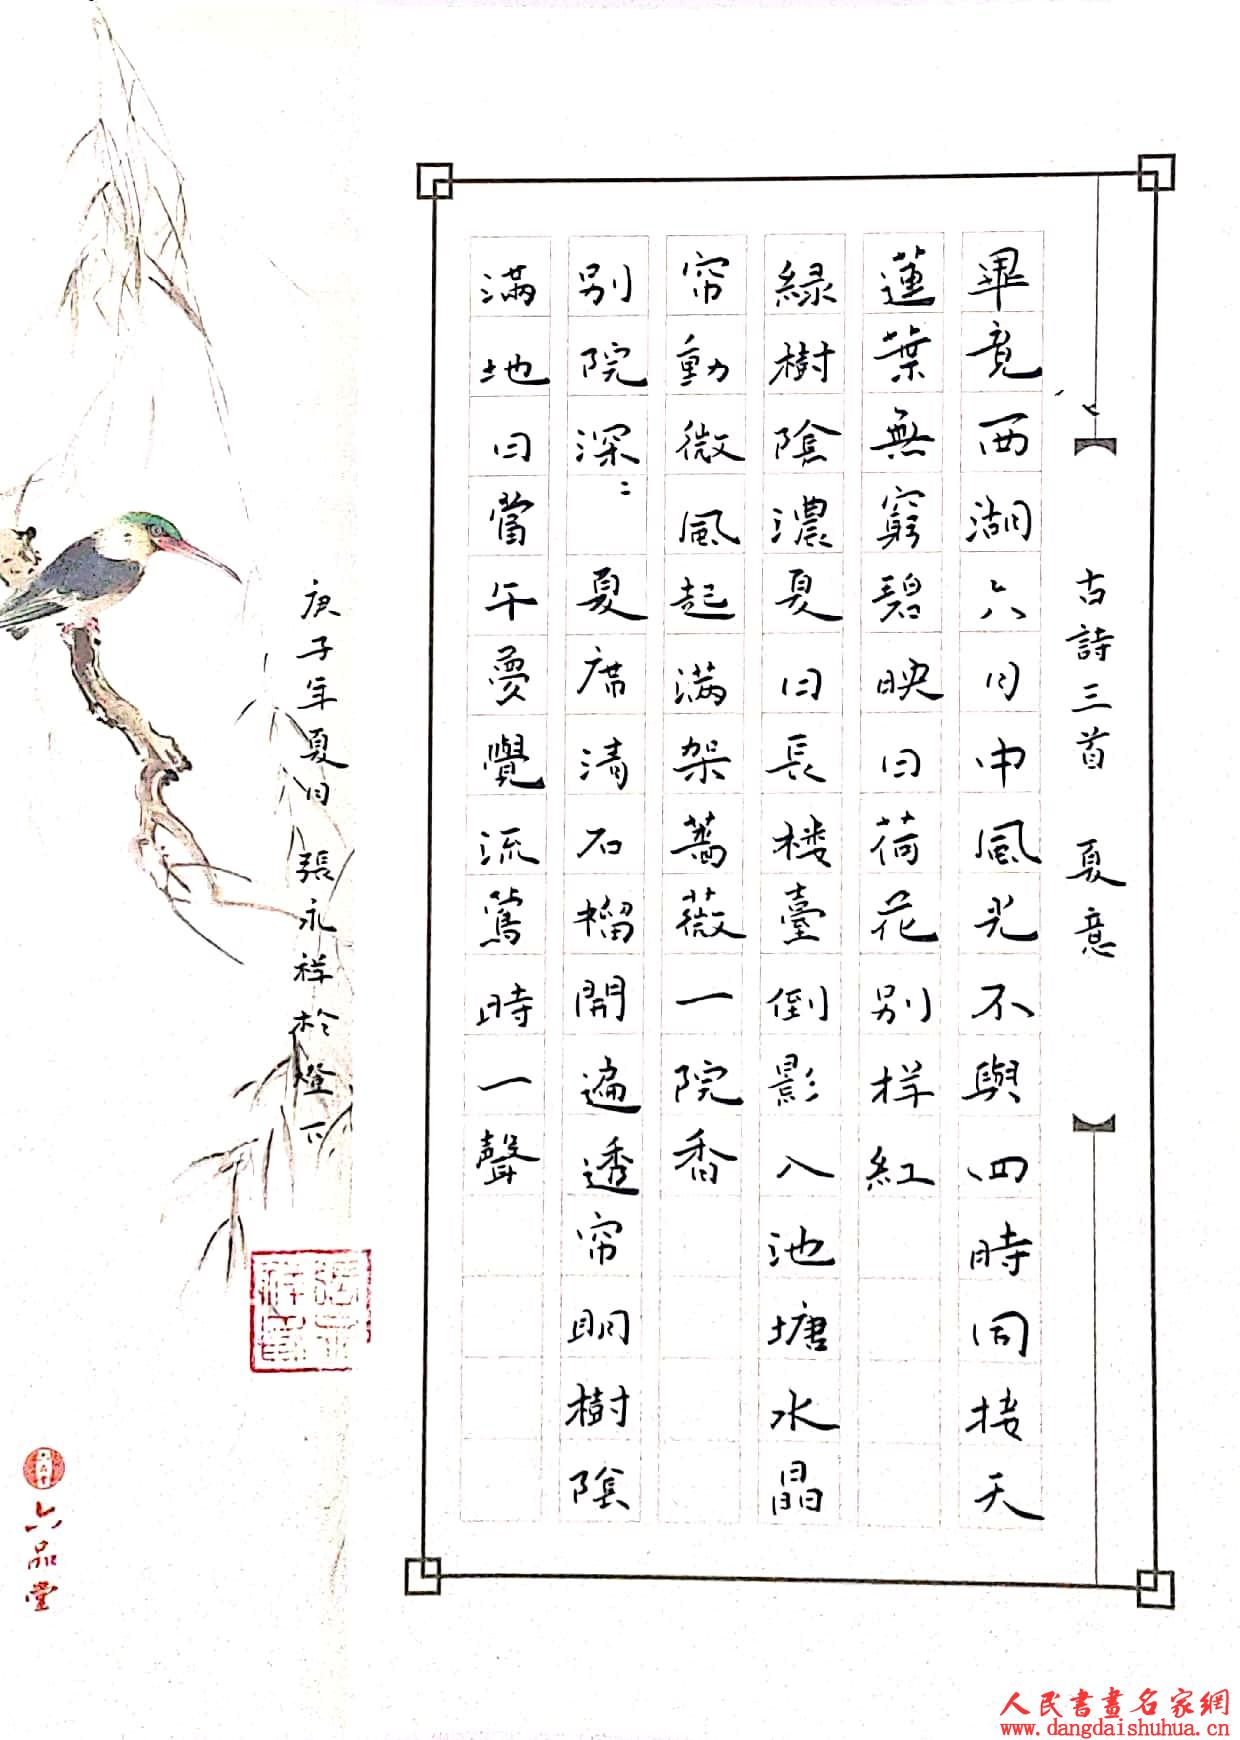 古詩三首 夏意
畢竟西湖六月中風光不與四時同接天
蓮葉無窮碧映日荷花别樣紅
緑樹陰濃夏日長楼臺倒影入池塘水晶
帘動微風起满架蔷薇一院香
别院深〻夏席清石榴開遍透帘明樹陰
滿地日當午夢覺流鶯時一聲
庚子年夏日張永祥於燈下
六品堂
人民書畫名家網
www.dangdaishuhua.com.cn